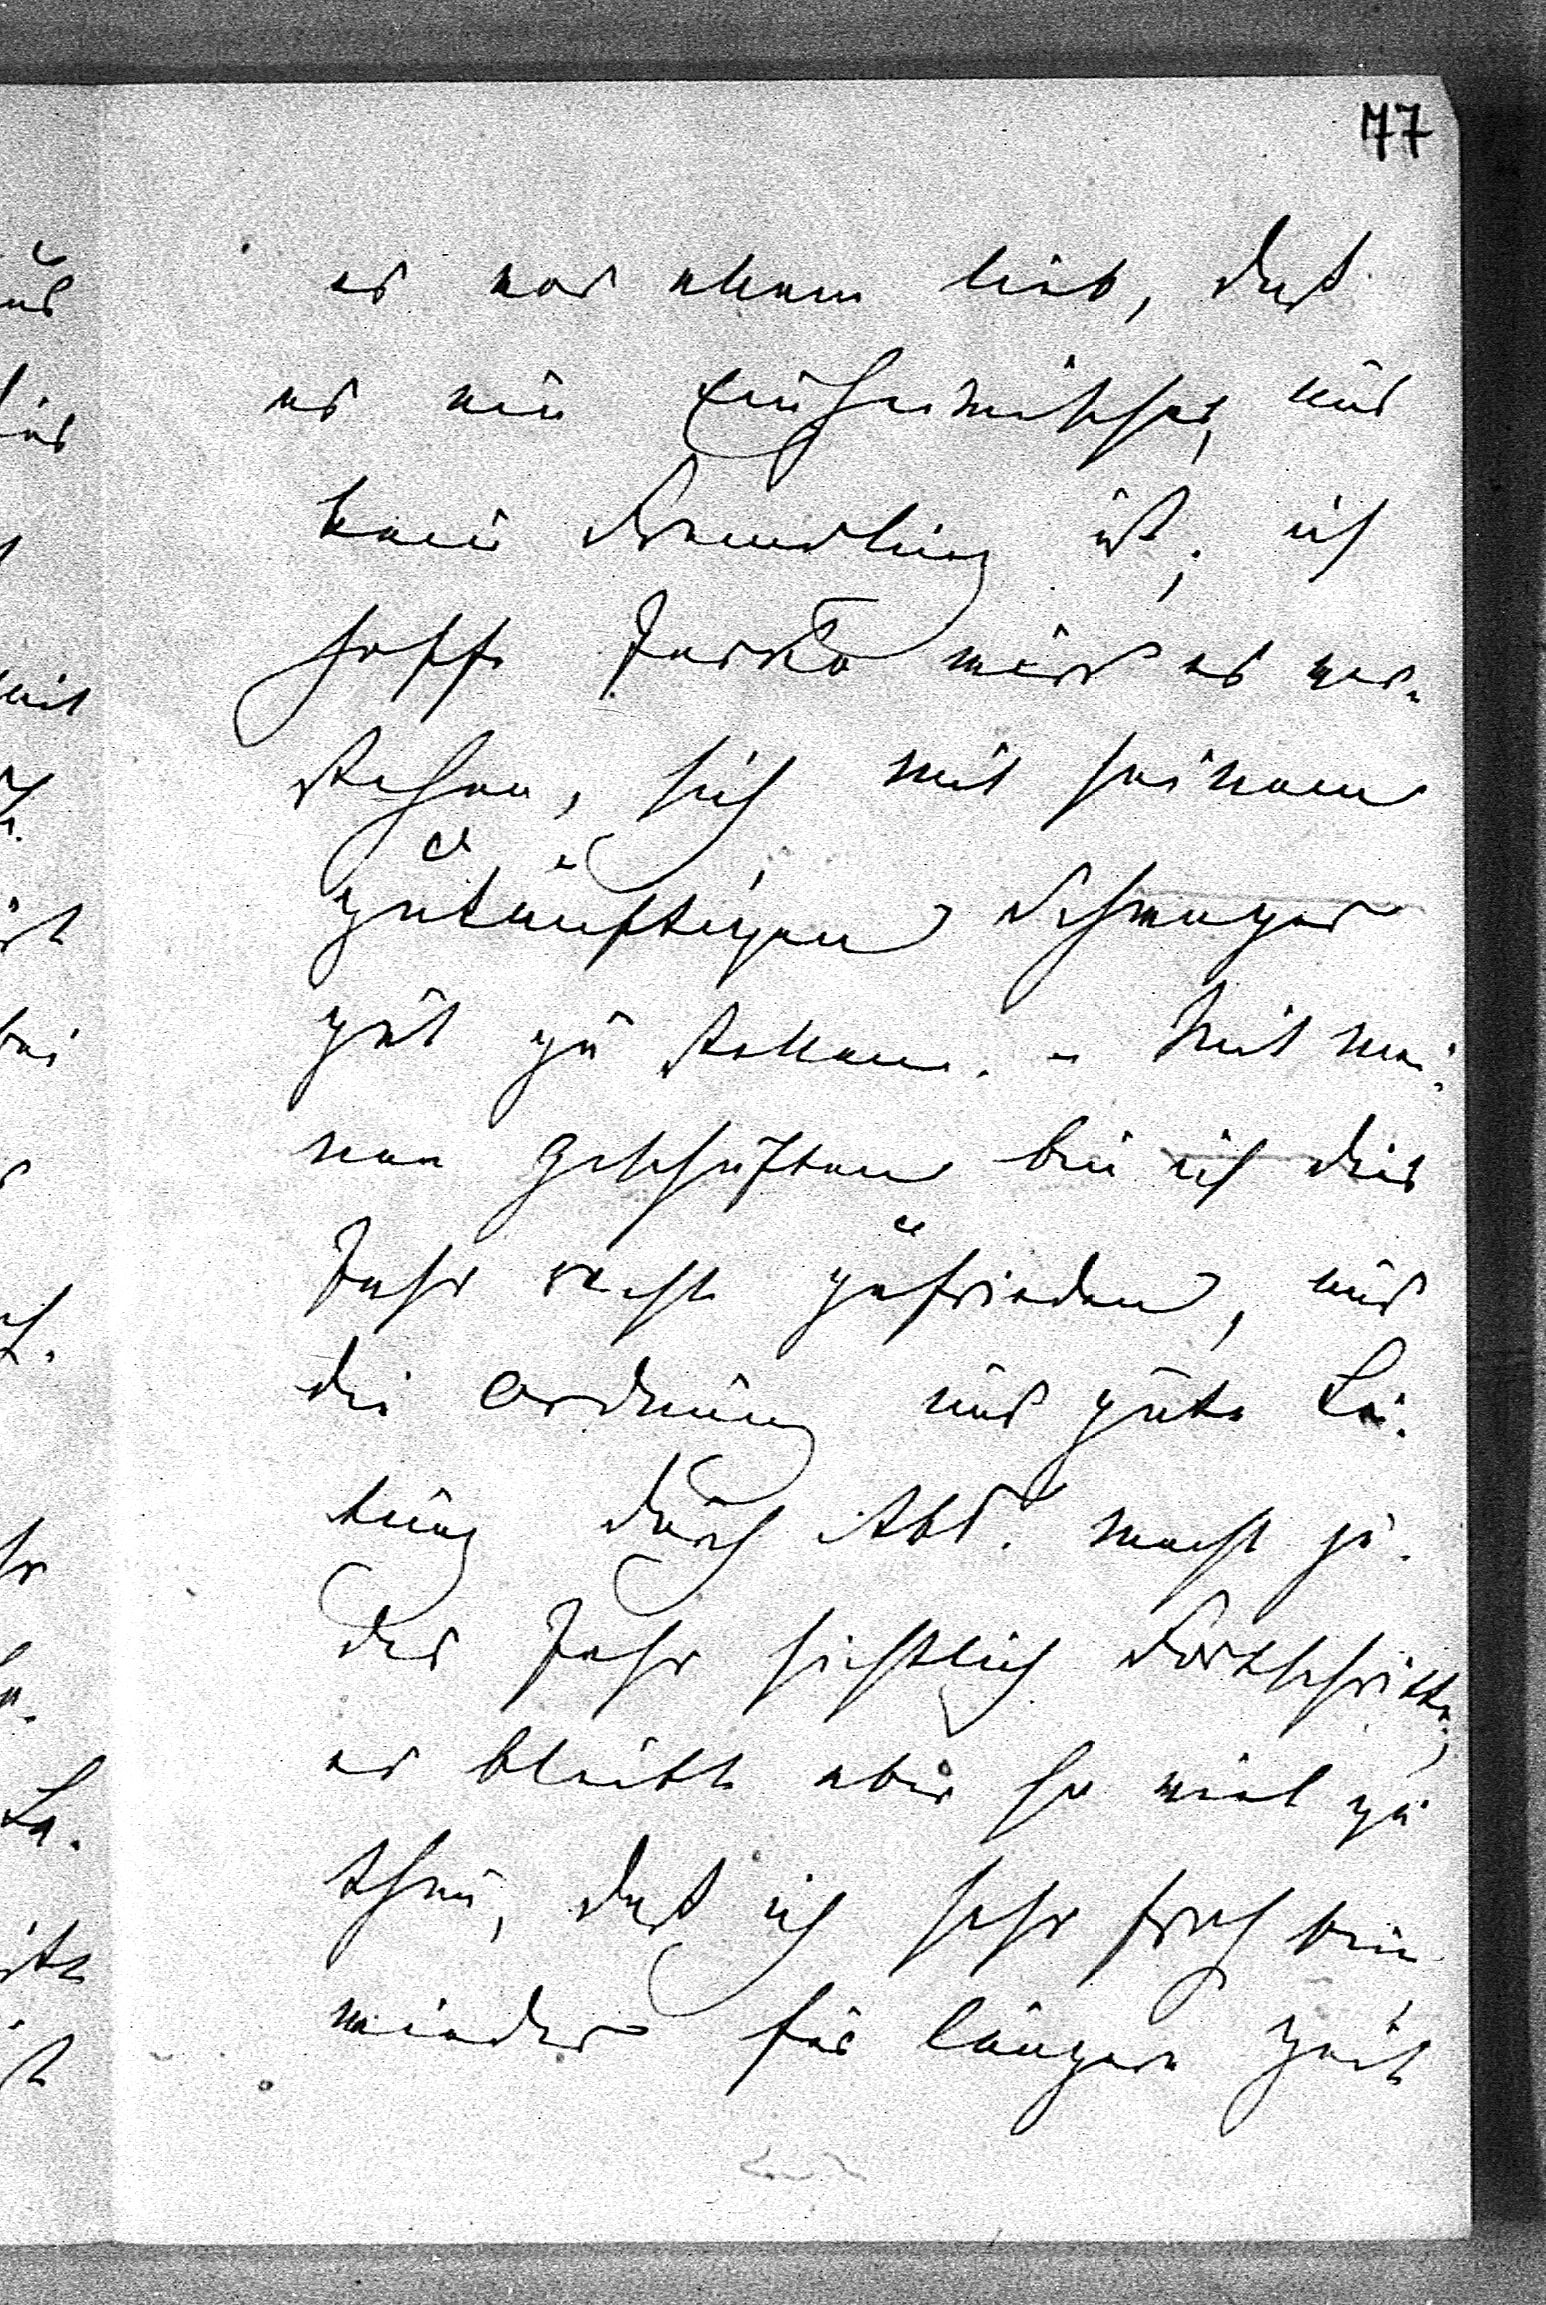 77
es vor allem lieb, daß
es ein Einheimischer, und
kein Fremdling ist; ich
hoffe Jarko wird es ver-
stehen, sich mit seinem
zukünftigen Schwager
gut zu stellen. - Mit mei-
nen Geschäften bin ich dies
Jahr recht zufrieden, und
die Ordnung und gute Lei-
tung durch Abd. macht je-
des Jahr sichtlich Fortschritte;
es bleibt aber so viel zu
thun, daß ich sehr froh bin,
wieder für längere Zeit